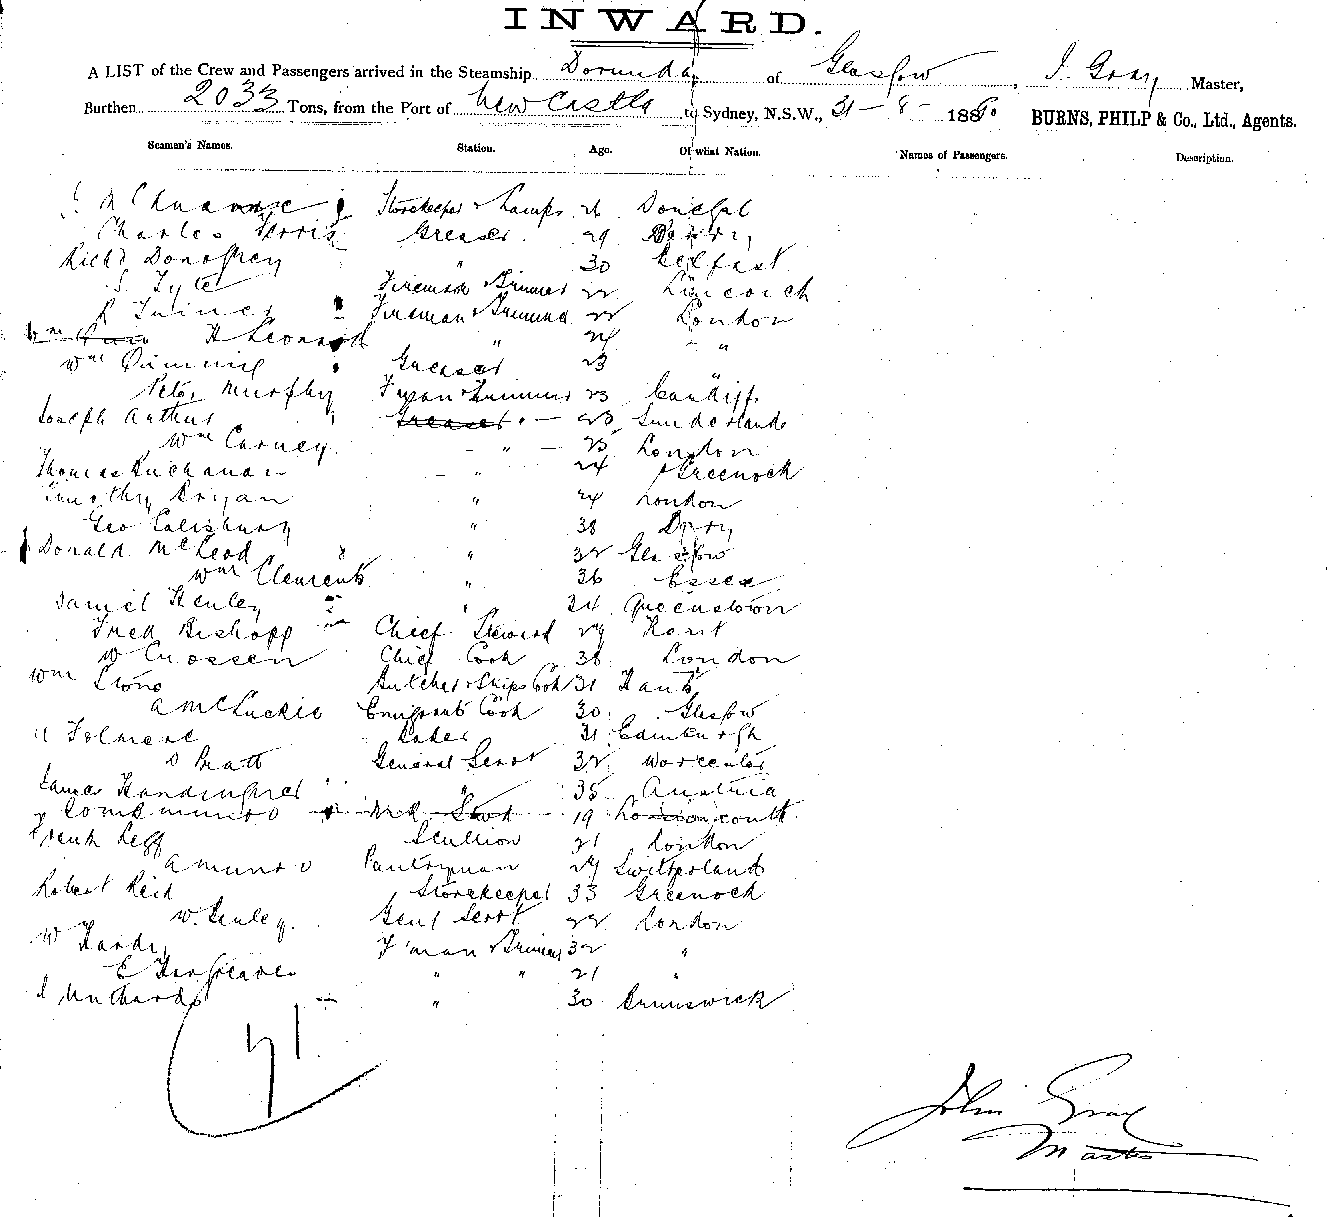 INWARD.
A LIST of the Crew and Passengers arrived in the Steamship Dorunda of Glasgow, J. Gray Master,
Burthen 2033 Tons, from the Port of New Castle to Sydney, N.S.W., 31 - 8 - 1880 BURNS, PHILP & Co., Ltd., Agents.
Seamen's Names. Station. Age. Of what Nation. Names of Passengers. Description.
Storekeeper & Lamps 26 Donegal
Charles Ferris Greaser 29 Derry
Richd Donoghey " 30 Belfast
S. Tyte Fireman & Trimmer 22
R Fireman & Trimmer 22 London
Wm H Leonard " 24 "
Wm Greaser 23 "
Peter Murphy F'man & Trimmer 23 Cardiff
Joseph Arthur Greaser " 23 Sunderland
Wm Carney " 23 London
Thomas Buchanan " 24 Greenock
Timothy Bryan " 24 London
Geo Salisbury " 38 Derry
Donald McLeod " 32 Glasgow
Wm Clements " 36 Essex
Daniel Henley " 24 Queenstown
Fred Bishopp Chief Steward 29 Kent
W Crossen Chief Cook 38 London
Wm Stone Butcher & Ships Cook 31 Hants
A McLuckie Emigrants Cook 30 Glasgow
Baker 31 Edinburgh
D Pratt General Servt 32 Worcester
James " 35 Austria
19
Frank Legg Scullion 21 London
A Munro Pantryman 29 Switzerland
Robert Reid Storekeeper 33 Greenock
W. Henley Genl Servt 22 London
W Hardy F'man & Trimmer 32 "
E Hargreaves " " 21 "
" 30 Brunswick
71
John Gray
Master